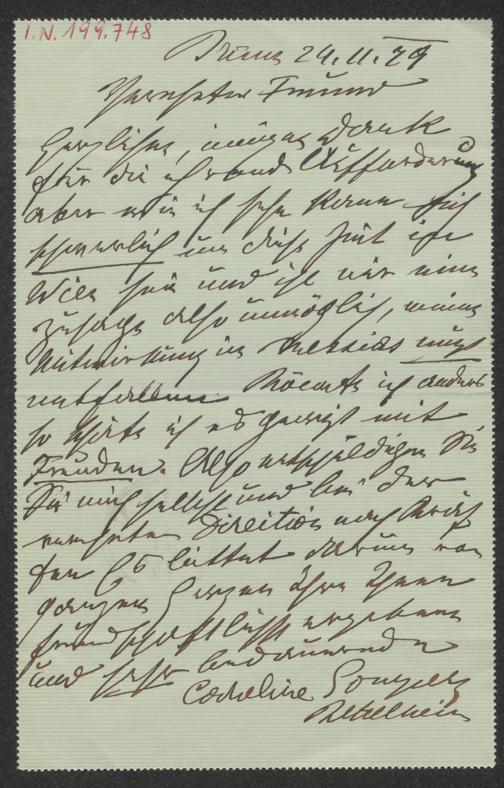 I.N. 199.748
Brünn 24.11.79
Verehrter Freund
Herzlichen, innigen Dank
für die ehrende Aufforderung
aber wie ich sehe kann ich
schwerlich um diese Zeit in
Wien sein und ist mir eine
Zusage also unmöglich, meine
Mitwirkung im Messias muß
entfallen. Könnte ich anders
so thäte ich es gewiß mit
Freuden. Also entschuldigen Sie
Sie mich selbst und bei der
verehrten Direction nach Kräf
ten Es bittet darum von
ganzem Herzen Ihre Ihnen
freundschaftlichst ergebene
und sehr bedauernde
Caroline Gomperz
Bettelheim